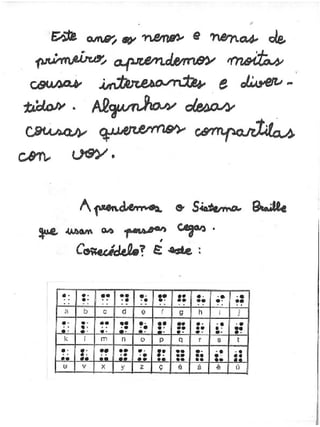 Este ano, os nenos e nenas de
primeiro, aprendemos moitas
cousas interesantes e diver-
tidas. Algunhas desas
cousas queremos compartilas
con vos.
Aprendemos o Sistema Braille
que usan as persoas cegas.
Coñecédelo? É este:
a b c d e f g h i j
k l m n o p q r s t
u v x y z ç é á è ú